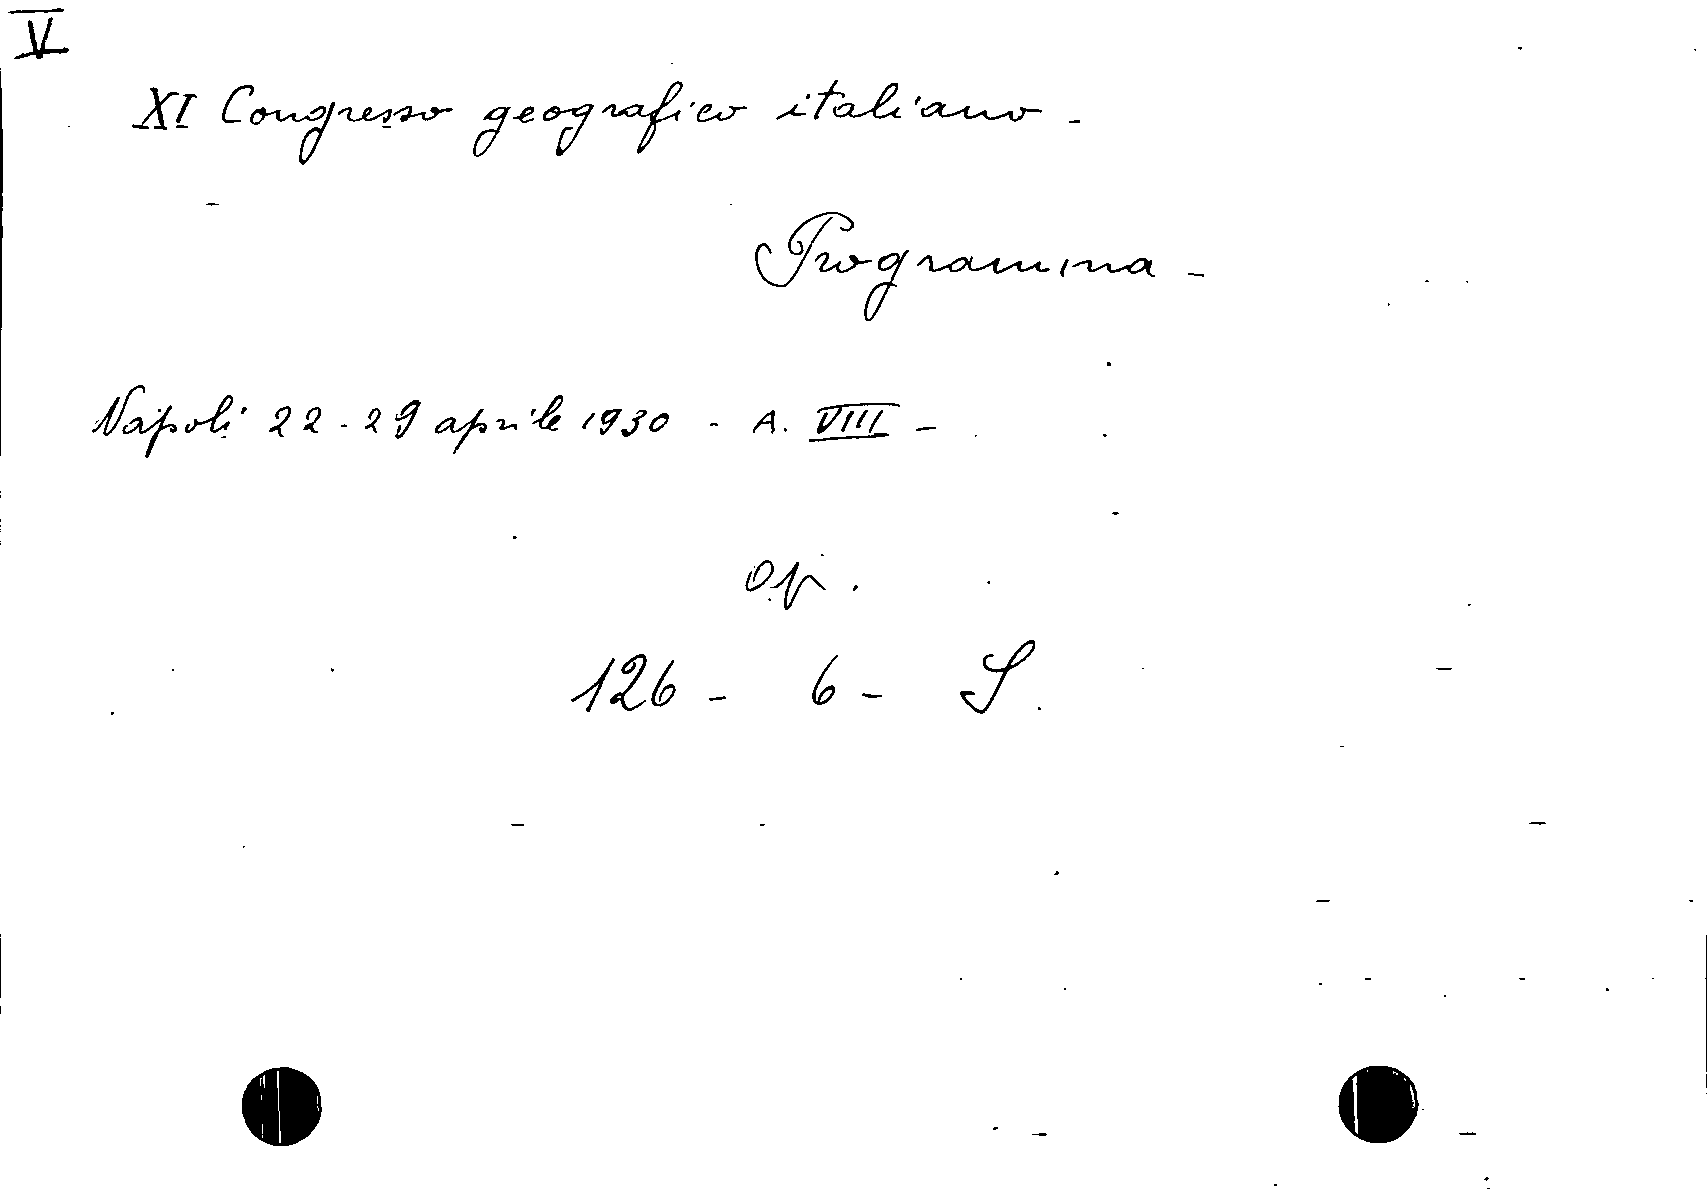 V
XI Congresso geografico italiano -
Programma -
Napoli 22-29 aprile 1930 - A. VIII -
op.
126 - 6 - S